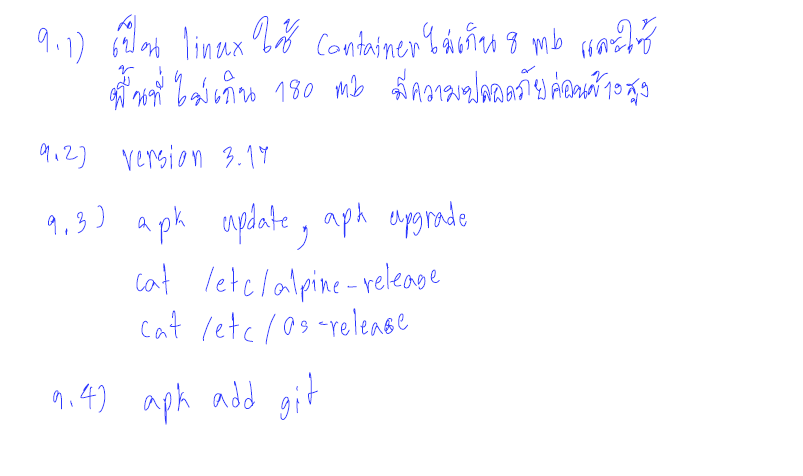 9.1) เป็น linux ใช้ Container ไม่เกิน 8 mb และใช้
พื้นที่ ไม่เกิน 180 mb มีความปลอดภัยค่อนข้างสูง
9.2) version 3.17
9.3) apk update, apk upgrade
cat /etc/alpine-release
cat /etc/os-release
9.4) apk add git